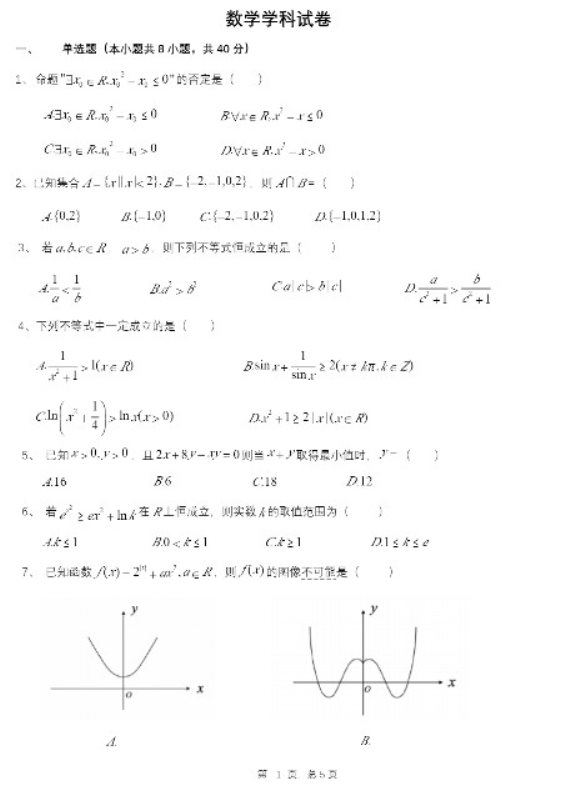 数学学科试卷
一、 单选题（本小题共 8 小题，共 40 分）
1、命题"∃x₀ ∈ R,x₀² − x₀ ≤ 0"的否定是（ ）
A.∃x₀ ∈ R,x₀² − x₀ ≤ 0 B.∀x ∈ R,x² − x ≤ 0
C.∃x₀ ∈ R,x₀² − x₀ > 0 D.∀x ∈ R,x² − x > 0
2、已知集合 A = {x||x|< 2},B = {−2,−1,0,2}，则 A∩B=（ ）
A.{0,2} B.{−1,0} C.{−2,−1,0,2} D.{−1,0,1,2}
3、若 a,b,c ∈ R，a > b，则下列不等式恒成立的是（ ）
A.1/a < 1/b B.a² > b² C.a|c|> b|c| D.a/(c²+1) > b/(c²+1)
4、下列不等式中一定成立的是（ ）
A.1/(x²+1) > 1(x ∈ R) B.sin x + 1/sin x ≥ 2(x ≠ kπ,k ∈ Z)
C.ln(x² + 1/4) > ln x(x > 0) D.x² + 1 ≥ 2|x|(x ∈ R)
5、已知 x > 0,y > 0，且 2x + 8y − xy = 0 则当 x + y 取得最小值时，y =（ ）
A.16 B.6 C.18 D.12
6、若 e^(x²) ≥ ex² + ln k 在 R 上恒成立，则实数 k 的取值范围为（ ）
A.k ≤ 1 B.0 < k ≤ 1 C.k ≥ 1 D.1 ≤ k ≤ e
7、已知函数 f(x) = 2^|x| + ax²,a ∈ R，则 f(x) 的图像不可能是（ ）
y y
x x
o o
A. B.
第 1 页 总 5 页